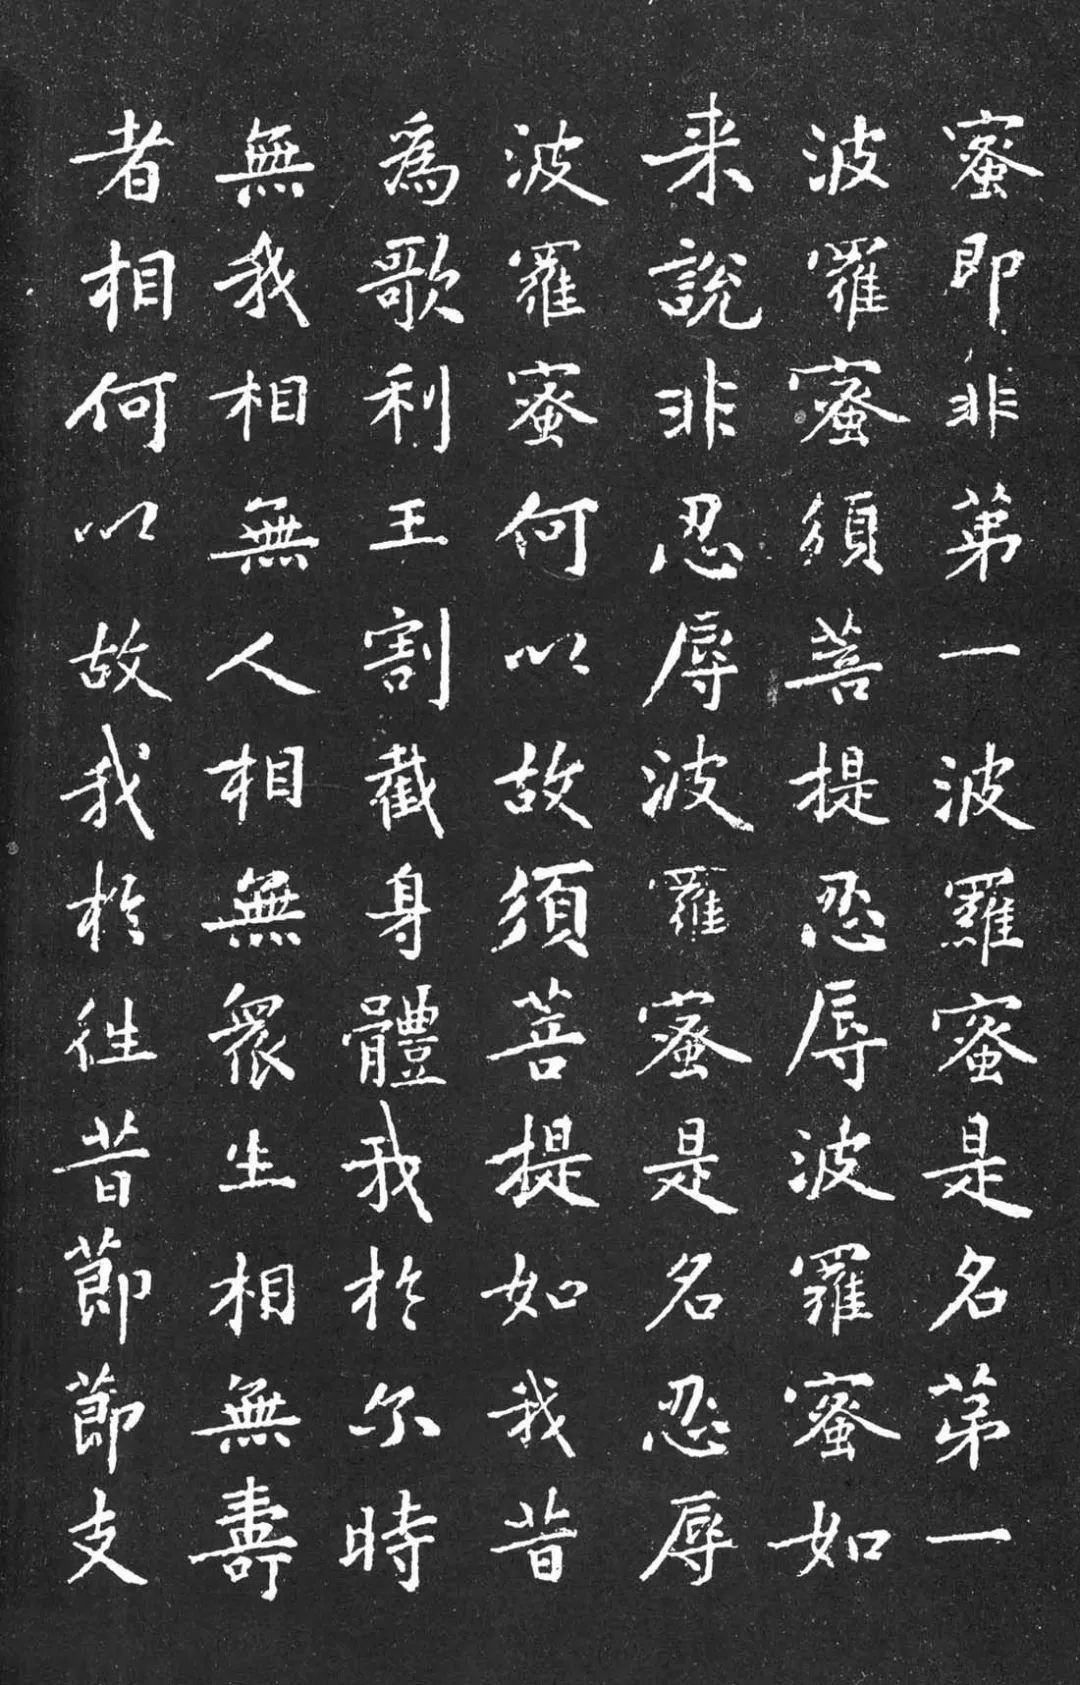 蜜即非第一波羅蜜是名第一
波羅蜜須菩提忍辱波羅蜜如
来說非忍辱波羅蜜是名忍辱
波羅蜜何以故須菩提如我昔
為歌利王割截身體我於尔時
無我相無人相無衆生相無壽
者相何以故我於往昔節節支